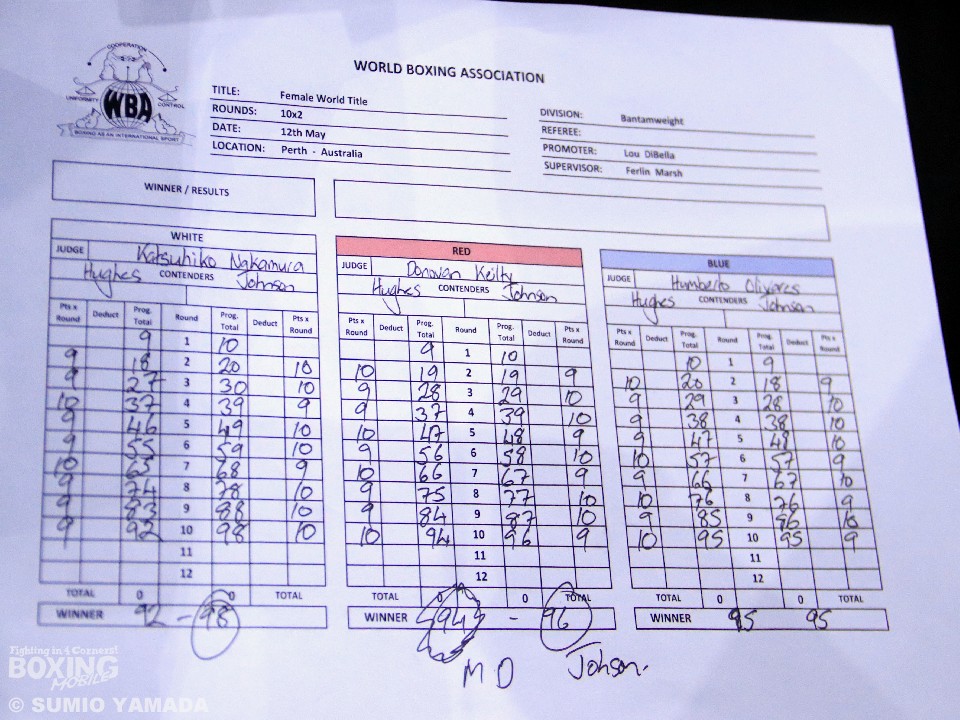 COOPERATION
UNIFORMITY WBA CONTROL
BOXING AS AN INTERNATIONAL SPORT
WORLD BOXING ASSOCIATION
TITLE: Female World Title
ROUNDS: 10x2
DATE: 12th May
LOCATION: Perth - Australia
DIVISION: Bantamweight
REFEREE:
PROMOTER: Lou DiBella
SUPERVISOR: Ferlin Marsh
WINNER / RESULTS
WHITE
JUDGE Katsuhiko Nakamura
Hughes CONTENDERS Johnson
Pts x Round Deduct Prog. Total Round Prog. Total Deduct Pts x Round
9 1 10
9 18 2 20 10
9 27 3 30 10
10 37 4 39 9
9 46 5 49 10
9 55 6 59 10
10 65 7 68 9
9 74 8 78 10
9 83 9 88 10
9 92 10 98 10
11
12
TOTAL 0 0 TOTAL
WINNER 92 - 98
RED
JUDGE Donovan Keilty
Hughes CONTENDERS Johnson
Pts x Round Deduct Prog. Total Round Prog. Total Deduct Pts x Round
9 1 10
10 19 2 19 9
9 28 3 29 10
9 37 4 39 10
10 47 5 48 9
9 56 6 58 10
10 66 7 67 9
9 75 8 77 10
9 84 9 87 10
10 94 10 96 9
11
12
TOTAL 0 0 TOTAL
WINNER 94 - 96
BLUE
JUDGE Humberto Olivares
Hughes CONTENDERS Johnson
Pts x Round Deduct Prog. Total Round Prog. Total Deduct Pts x Round
10 1 9
10 20 2 18 9
9 29 3 28 10
9 38 4 38 10
9 47 5 48 10
10 57 6 57 9
9 66 7 67 10
10 76 8 76 9
9 85 9 86 10
10 95 10 95 9
11
12
TOTAL 0 0 TOTAL
WINNER 95 95
MD Johson.
Fighting in 4 Corners!
BOXING
MOBILE
© SUMIO YAMADA